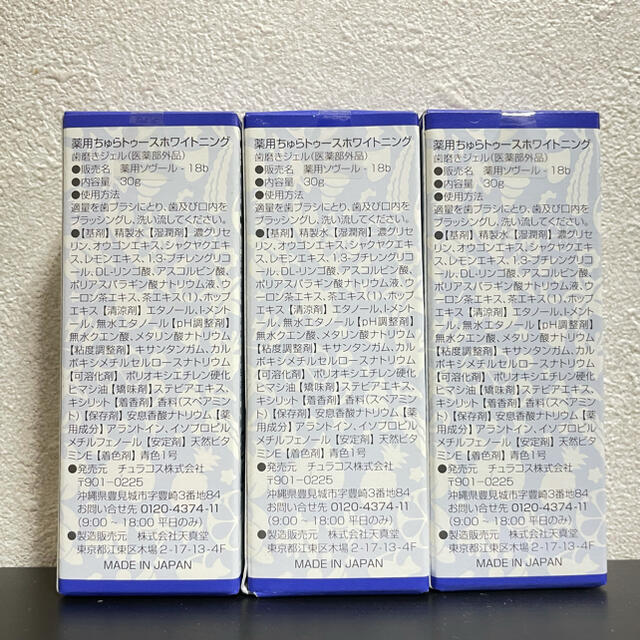 薬用ちゅらトゥースホワイトニング
歯磨きジェル(医薬部外品)
●販売名　薬用ソヴール - 18b
●内容量　30g
●使用方法
適量を歯ブラシにとり、歯及び口内を
ブラッシングし、洗い流してください。
●【基剤】精製水【湿潤剤】濃グリセ
リン、オウゴンエキス、シャクヤクエキ
ス、レモンエキス、1,3-ブチレングリコ
ール、DL-リンゴ酸、アスコルビン酸、
ポリアスパラギン酸ナトリウム液、ウ
ーロン茶エキス、茶エキス(1)、ホップ
エキス【清涼剤】エタノール、l-メント
ール、無水エタノール【pH調整剤】
無水クエン酸、メタリン酸ナトリウム
【粘度調整剤】キサンタンガム、カル
ボキシメチルセルロースナトリウム
【可溶化剤】ポリオキシエチレン硬化
ヒマシ油【矯味剤】ステビアエキス、
キシリット【着香剤】香料(スペアミン
ト)【保存剤】安息香酸ナトリウム【薬
用成分】アラントイン、イソプロピル
メチルフェノール【安定剤】天然ビタ
ミンE【着色剤】青色1号
●発売元　チュラコス株式会社
〒901-0225
沖縄県豊見城市字豊崎3番地84
お問い合せ先 0120-4374-11
(9:00 ~ 18:00 平日のみ)
●製造販売元　株式会社天真堂
東京都江東区木場 2-17-13-4F
MADE IN JAPAN
薬用ちゅらトゥースホワイトニング
歯磨きジェル(医薬部外品)
●販売名　薬用ソヴール - 18b
●内容量　30g
●使用方法
適量を歯ブラシにとり、歯及び口内を
ブラッシングし、洗い流してください。
●【基剤】精製水【湿潤剤】濃グリセ
リン、オウゴンエキス、シャクヤクエキ
ス、レモンエキス、1,3-ブチレングリコ
ール、DL-リンゴ酸、アスコルビン酸、
ポリアスパラギン酸ナトリウム液、ウ
ーロン茶エキス、茶エキス(1)、ホップ
エキス【清涼剤】エタノール、l-メント
ール、無水エタノール【pH調整剤】
無水クエン酸、メタリン酸ナトリウム
【粘度調整剤】キサンタンガム、カル
ボキシメチルセルロースナトリウム
【可溶化剤】ポリオキシエチレン硬化
ヒマシ油【矯味剤】ステビアエキス、
キシリット【着香剤】香料(スペアミン
ト)【保存剤】安息香酸ナトリウム【薬
用成分】アラントイン、イソプロピル
メチルフェノール【安定剤】天然ビタ
ミンE【着色剤】青色1号
●発売元　チュラコス株式会社
〒901-0225
沖縄県豊見城市字豊崎3番地84
お問い合せ先 0120-4374-11
(9:00 ~ 18:00 平日のみ)
●製造販売元　株式会社天真堂
東京都江東区木場 2-17-13-4F
MADE IN JAPAN
薬用ちゅらトゥースホワイトニング
歯磨きジェル(医薬部外品)
●販売名　薬用ソヴール - 18b
●内容量　30g
●使用方法
適量を歯ブラシにとり、歯及び口内を
ブラッシングし、洗い流してください。
●【基剤】精製水【湿潤剤】濃グリセ
リン、オウゴンエキス、シャクヤクエキ
ス、レモンエキス、1,3-ブチレングリコ
ール、DL-リンゴ酸、アスコルビン酸、
ポリアスパラギン酸ナトリウム液、ウ
ーロン茶エキス、茶エキス(1)、ホップ
エキス【清涼剤】エタノール、l-メント
ール、無水エタノール【pH調整剤】
無水クエン酸、メタリン酸ナトリウム
【粘度調整剤】キサンタンガム、カル
ボキシメチルセルロースナトリウム
【可溶化剤】ポリオキシエチレン硬化
ヒマシ油【矯味剤】ステビアエキス、
キシリット【着香剤】香料(スペアミン
ト)【保存剤】安息香酸ナトリウム【薬
用成分】アラントイン、イソプロピル
メチルフェノール【安定剤】天然ビタ
ミンE【着色剤】青色1号
●発売元　チュラコス株式会社
〒901-0225
沖縄県豊見城市字豊崎3番地84
お問い合せ先 0120-4374-11
(9:00 ~ 18:00 平日のみ)
●製造販売元　株式会社天真堂
東京都江東区木場 2-17-13-4F
MADE IN JAPAN